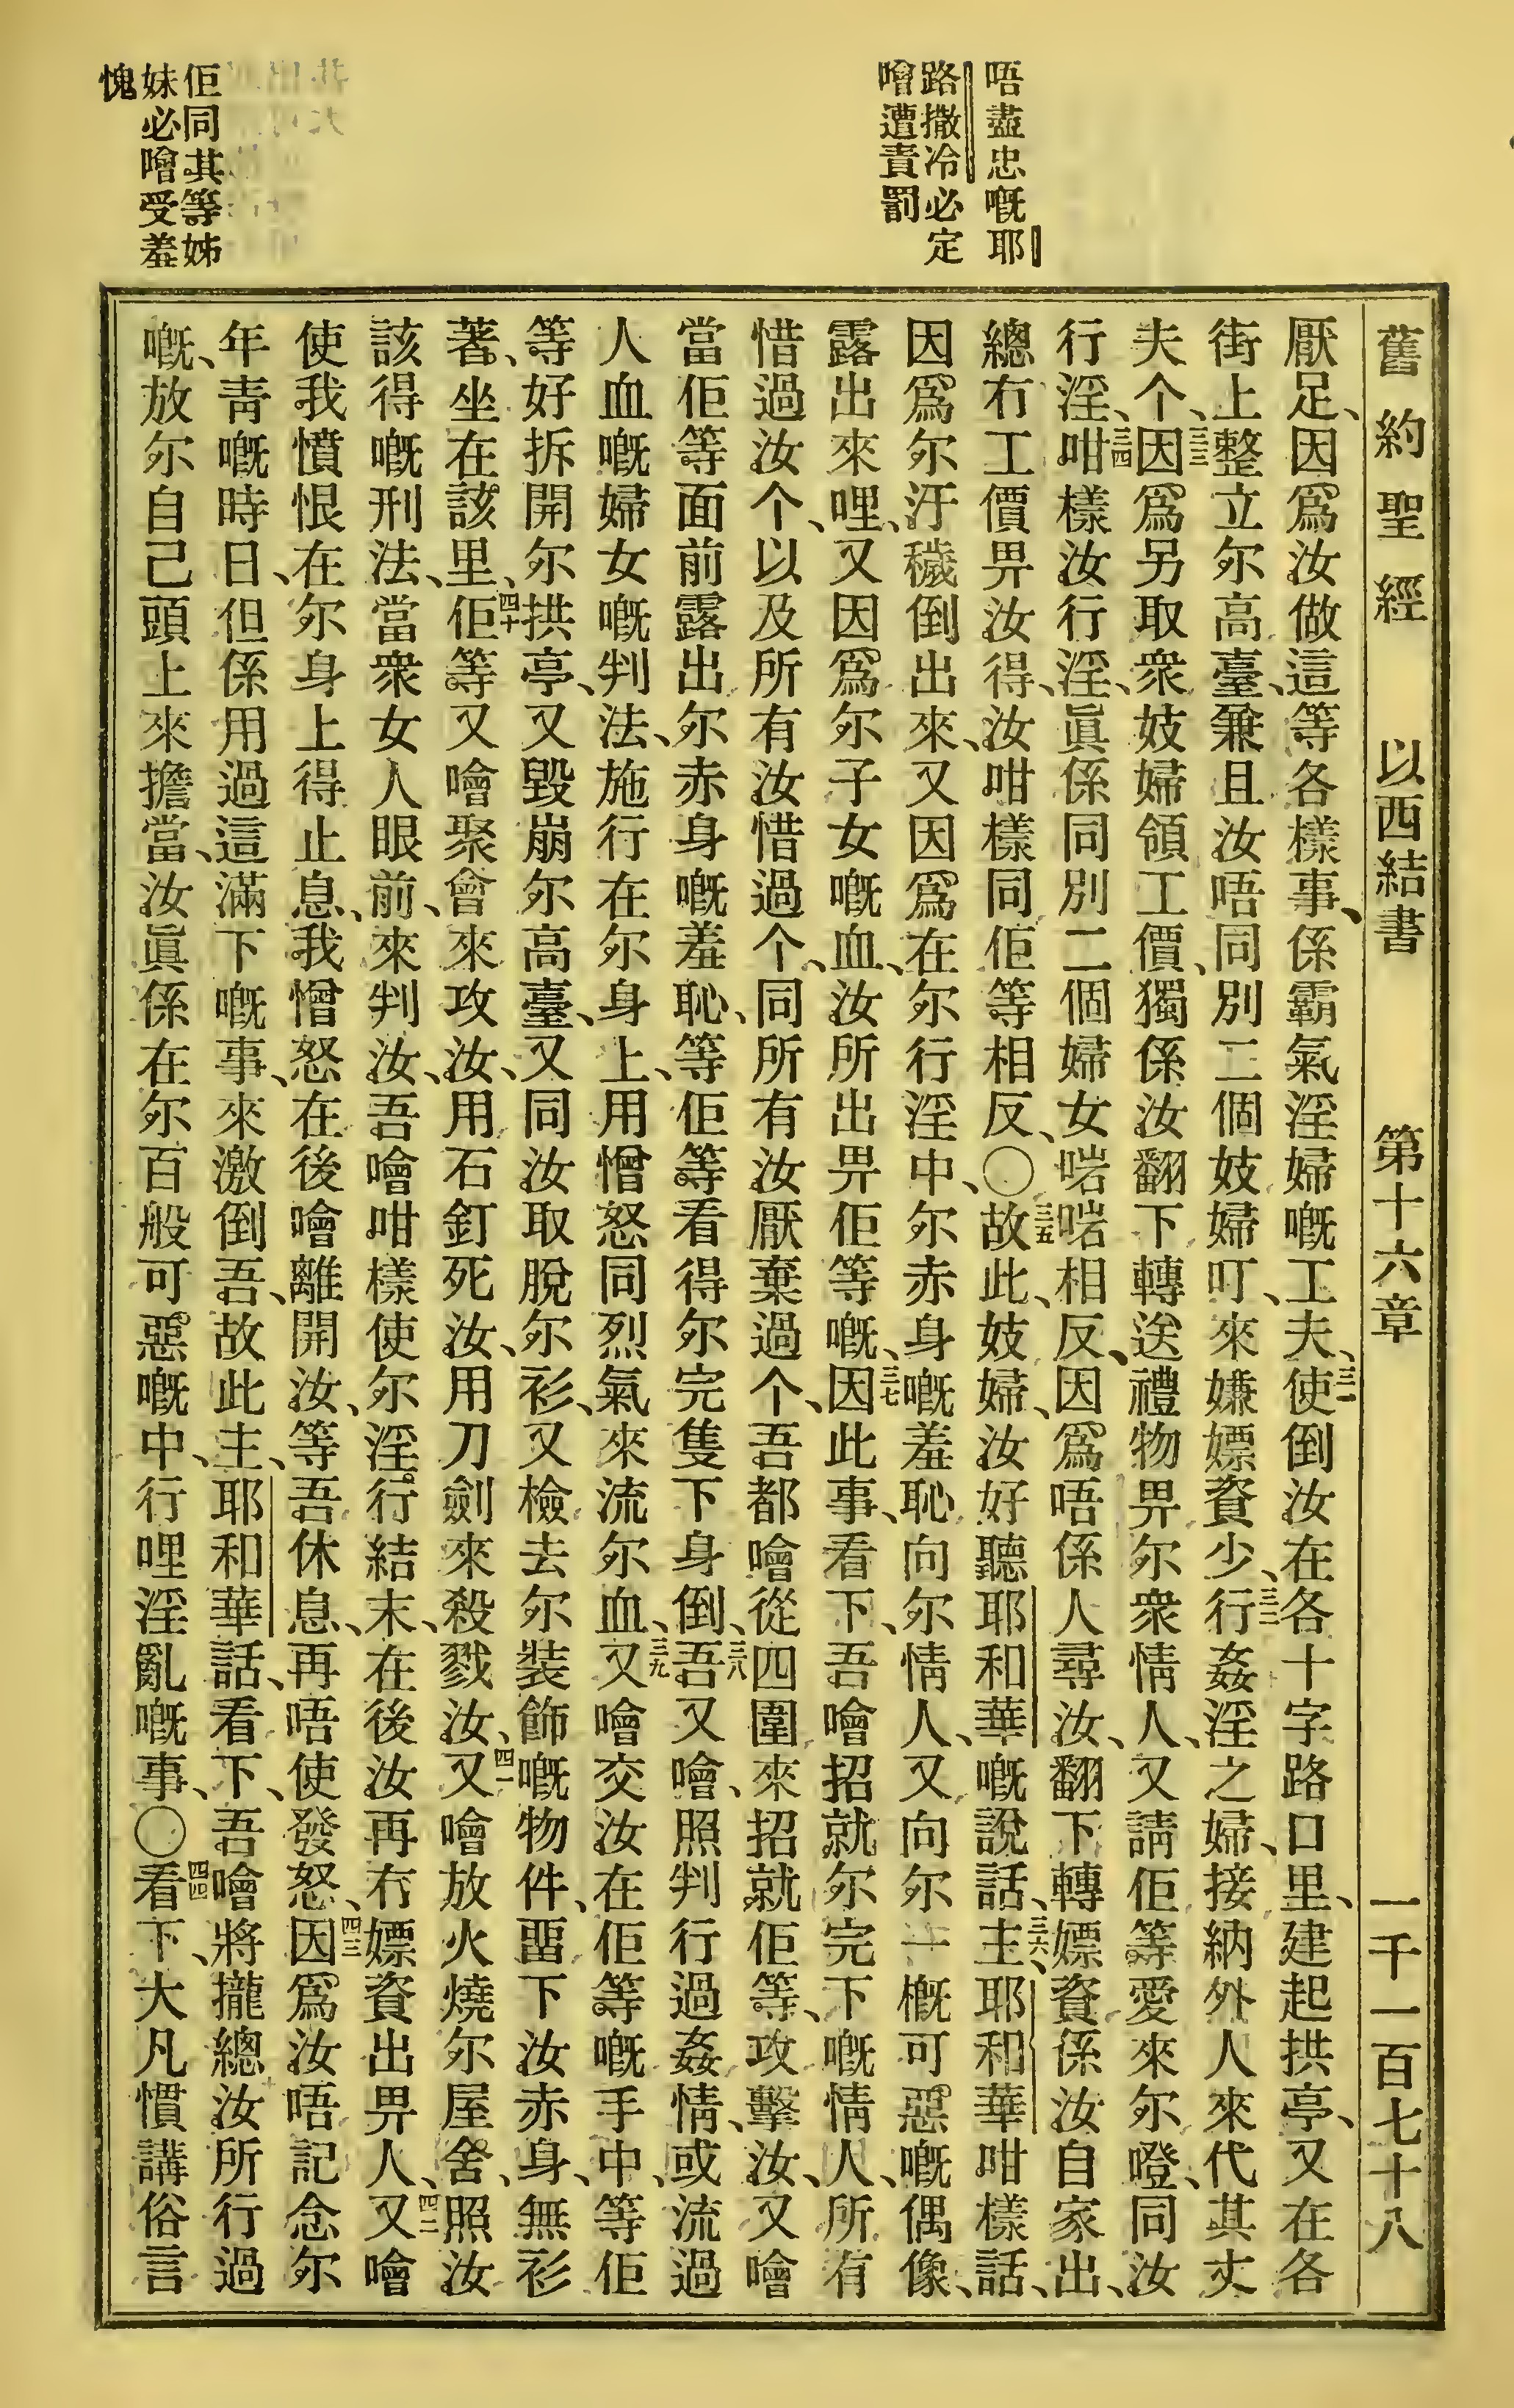 唔盡忠嘅耶
路撒冷必定
噲遭責罰
佢同其等姊
妹必噲受羞
愧
舊約聖經 以西結書 第十六章 一千一百七十八
厭足、因爲汝做這等各樣事、係霸氣淫婦嘅工夫、三一使倒汝在各十字路口里、建起拱亭、又在各
街上整立尔高臺、兼且汝唔同別二個妓婦叮、來嫌嫖資少、三二行姦淫之婦、接納外人來代其丈
夫个、三三因爲另取衆妓婦領工價、獨係汝翻下轉送禮物畀尔衆情人、又請佢等愛來尔嶝、同汝
行淫、三四咁樣汝行淫、眞係同別二個婦女啱啱相反、因爲唔係人尋汝、翻下轉嫖資係汝自家出、
總冇工價畀汝得、汝咁樣同佢等相反、〇三五故此、妓婦、汝好聽耶和華嘅說話、三六主、耶和華咁樣話、
因爲尔汙穢倒出來、又因爲在尔行淫中、尔赤身嘅羞恥向尔情人、又向尔一概可惡嘅偶像、
露出來哩、又因爲尔子女嘅血、汝所出畀佢等嘅、三七因此事、看下、吾噲招就尔完下嘅情人、所有
惜過汝个、以及所有汝惜過个、同所有汝厭棄過个、吾都噲從四圍來招就佢等、攻擊汝、又噲
當佢等面前露出尔赤身嘅羞恥、等佢等看得尔完隻下身倒、三八吾又噲照判行過姦情、或流過
人血嘅婦女嘅判法、施行在尔身上、用憎怒同烈氣來流尔血、三九又噲交汝在佢等嘅手中、等佢
等好拆開尔拱亭、又毀崩尔高臺、又同汝取脫尔衫、又檢去尔裝飾嘅物件、畱下汝赤身、無衫
著、坐在該里、四十佢等又噲聚會來攻汝、用石釘死汝、用刀劍來殺戮汝、四一又噲放火燒尔屋舍、照汝
該得嘅刑法、當衆女人眼前、來判汝、吾噲咁樣使尔淫行結末、在後汝再冇嫖資出畀人、四二又噲
使我憤恨在尔身上得止息、我憎怒在後噲離開汝、等吾休息、再唔使發怒、四三因爲汝唔記念尔
年靑嘅時日、但係用過這滿下嘅事、來激倒吾、故此主、耶和華話、看下、吾噲將攏總汝所行過
嘅、放尔自己頭上來擔當、汝眞係在尔百般可惡嘅中、行哩淫亂嘅事、〇四四看下、大凡慣講俗言